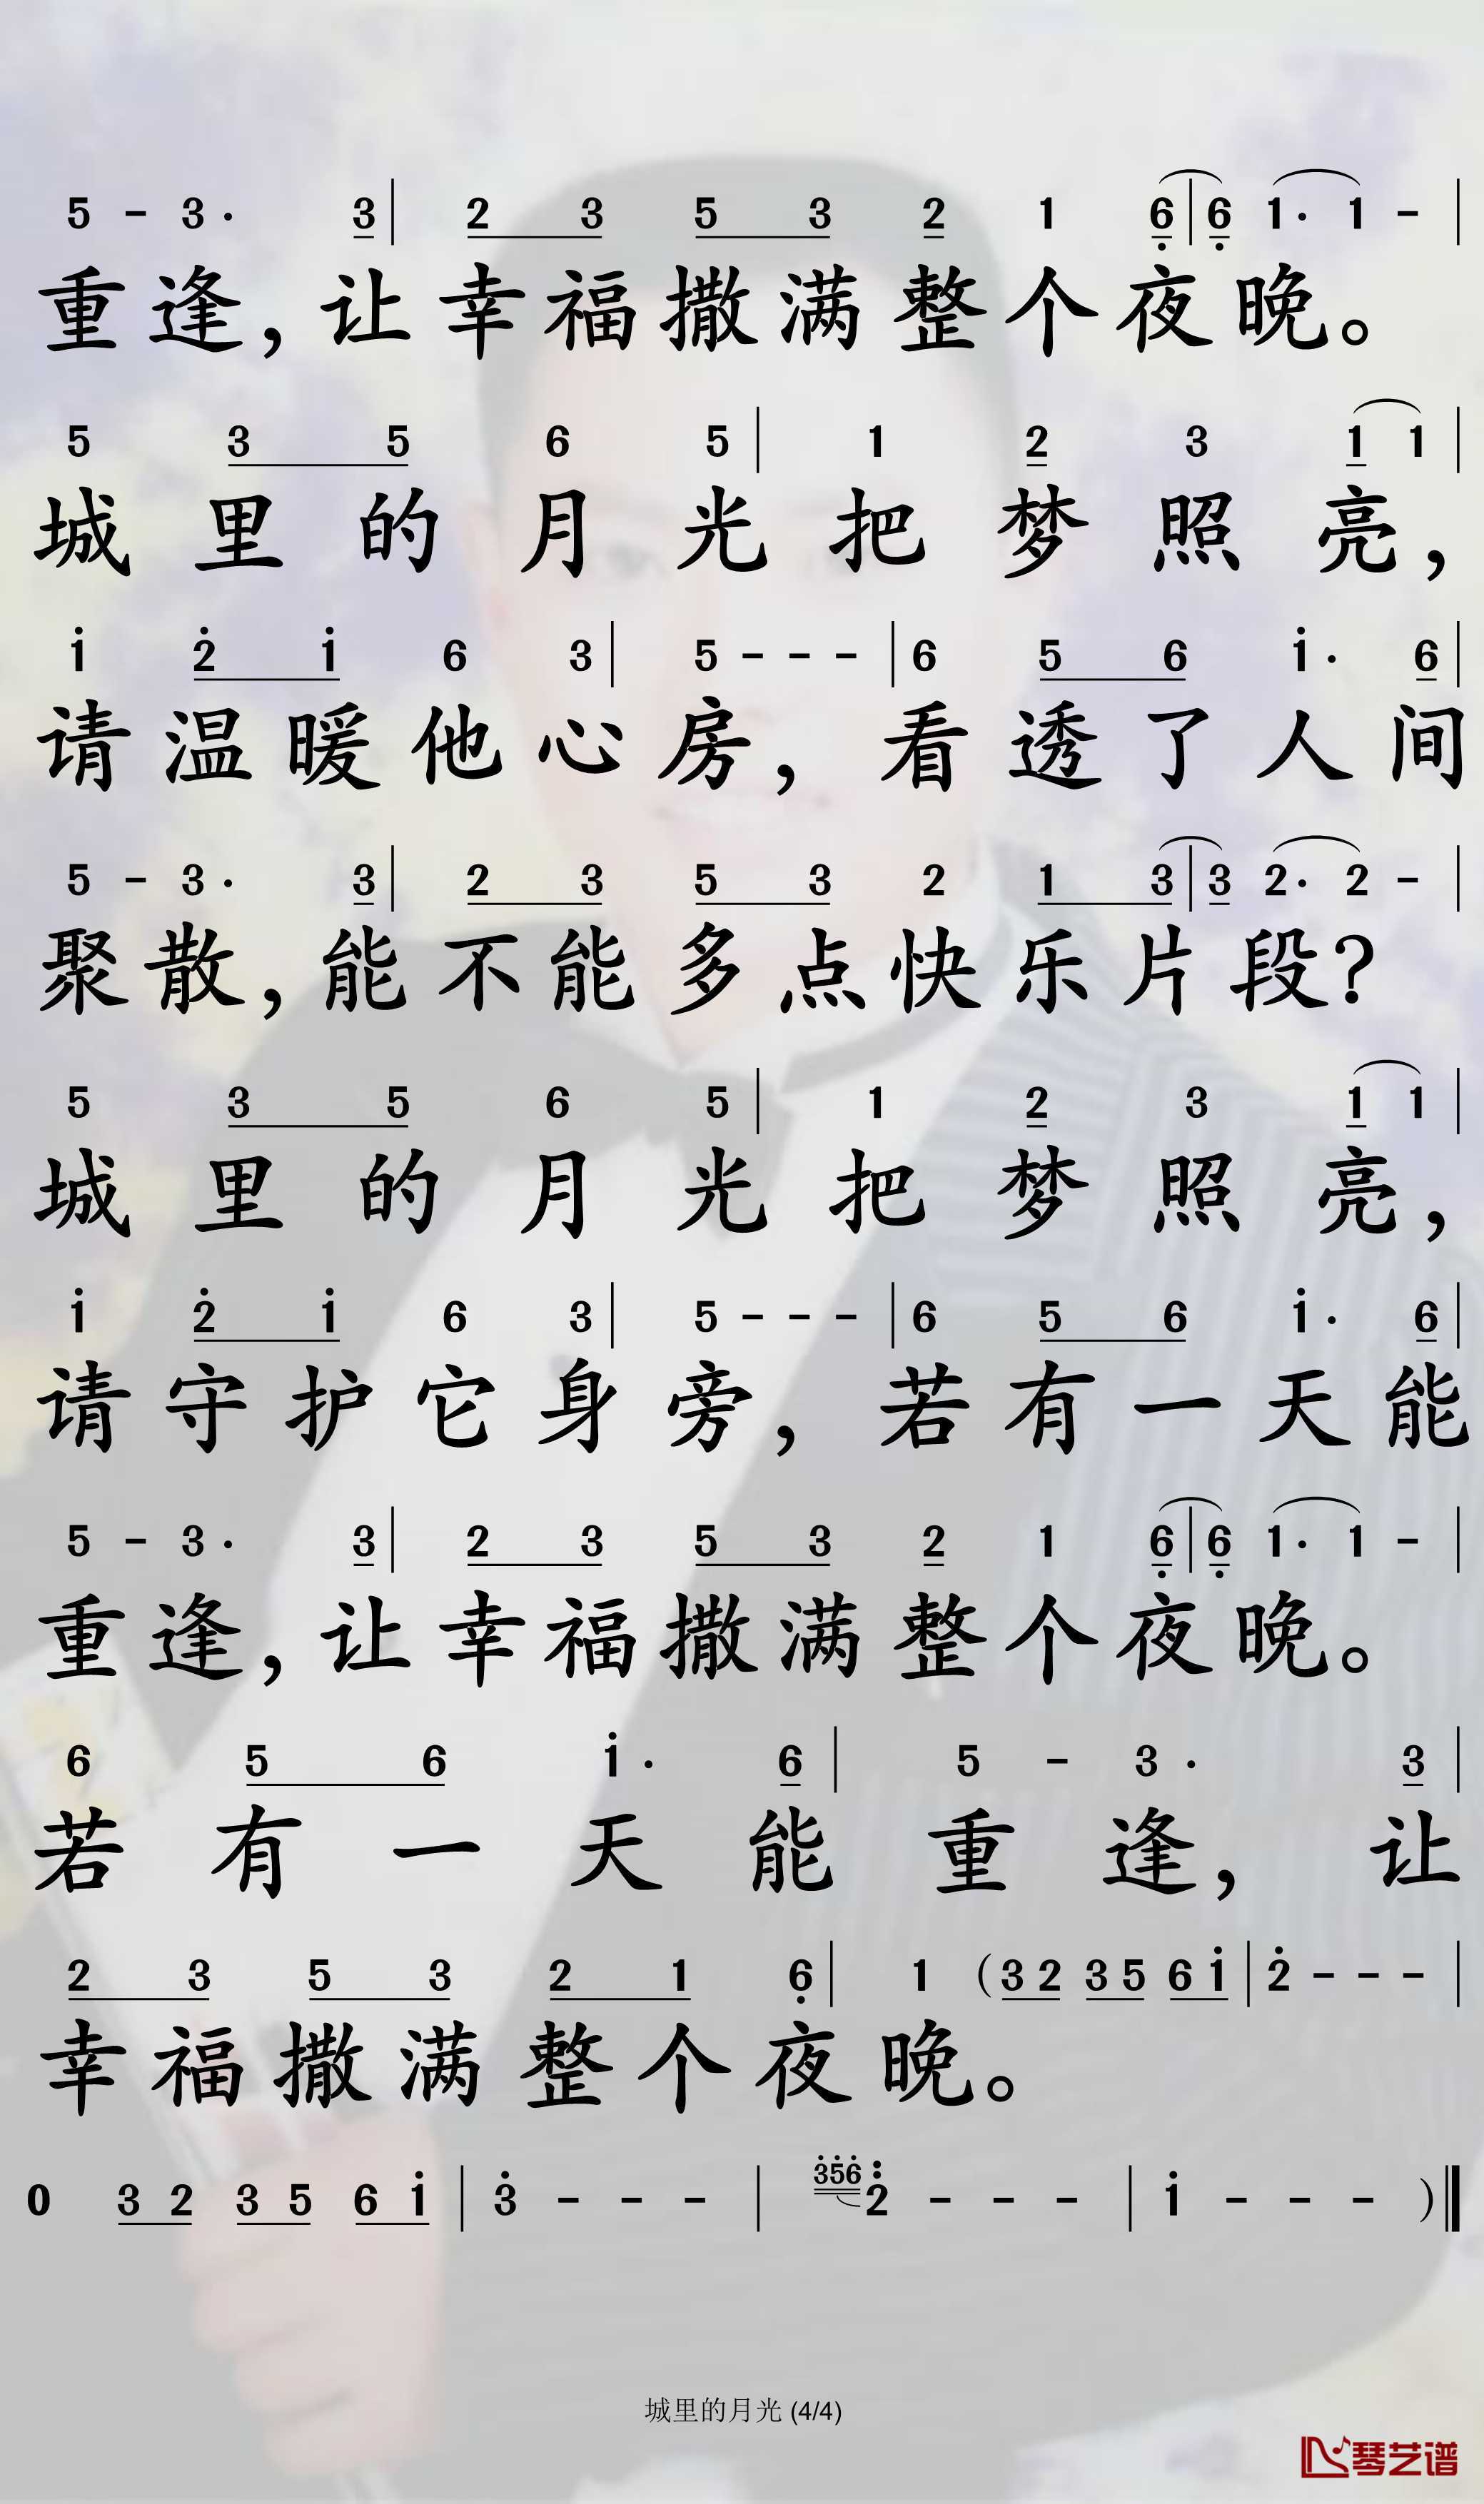 5 - 3· 3 | 2 3 5 3 2 1 6̣ | 6̣ 1· 1 - |
重逢，让幸福撒满整个夜晚。
5 3 5 6 5 | 1 2 3 1 1 |
城里的月光把梦照亮，
1̇ 2̇ 1̇ 6 3 | 5 - - - | 6 5 6 1̇· 6 |
请温暖他心房，看透了人间
5 - 3· 3 | 2 3 5 3 2 1 3 | 3 2· 2 - |
聚散，能不能多点快乐片段？
5 3 5 6 5 | 1 2 3 1 1 |
城里的月光把梦照亮，
1̇ 2̇ 1̇ 6 3 | 5 - - - | 6 5 6 1̇· 6 |
请守护它身旁，若有一天能
5 - 3· 3 | 2 3 5 3 2 1 6̣ | 6̣ 1· 1 - |
重逢，让幸福撒满整个夜晚。
6 5 6 1̇· 6 | 5 - 3· 3 |
若有一天能重逢，让
2 3 5 3 2 1 6̣ | 1 (3 2 3 5 6 1̇ | 2̇ - - - |
幸福撒满整个夜晚。
0 3 2 3 5 6 1̇ | 3̇ - - - | 3̇5̇6̇ 2̈ - - - | 1̇ - - - )‖
城里的月光 (4/4)
琴艺谱